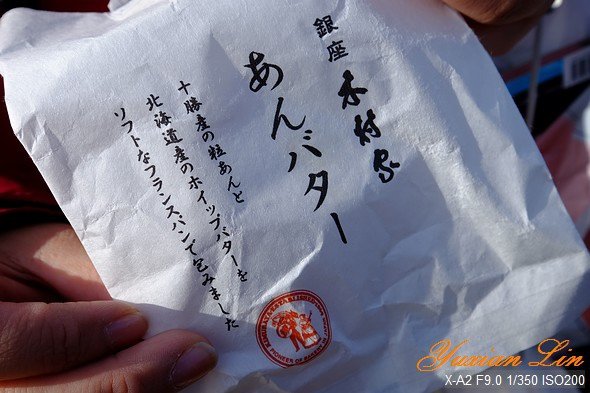 銀座 木村家
あんバター
十勝産の粒あんと
北海道産のホイップバターを
ソフトなフランスパンで包みました
Yumian Lin
X-A2 F9.0 1/350 ISO200